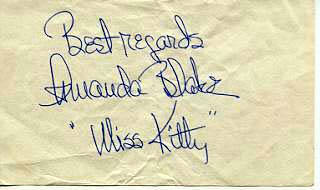 Best regards
Amanda Blake
"Miss Kitty"